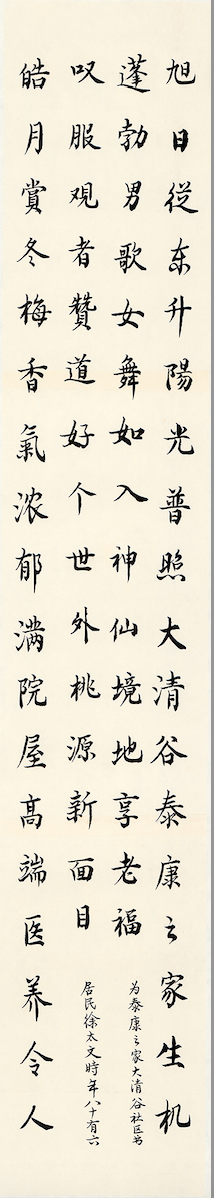 旭日從东升陽光普照大清谷泰康之家生机
蓬勃男歌女舞如入神仙境地享老福
皓月賞冬梅香氣浓郁满院屋高端医养令人
叹服观者贊道好个世外桃源新面目
为泰康之家大清谷社区书
居民徐太文時年八十有六